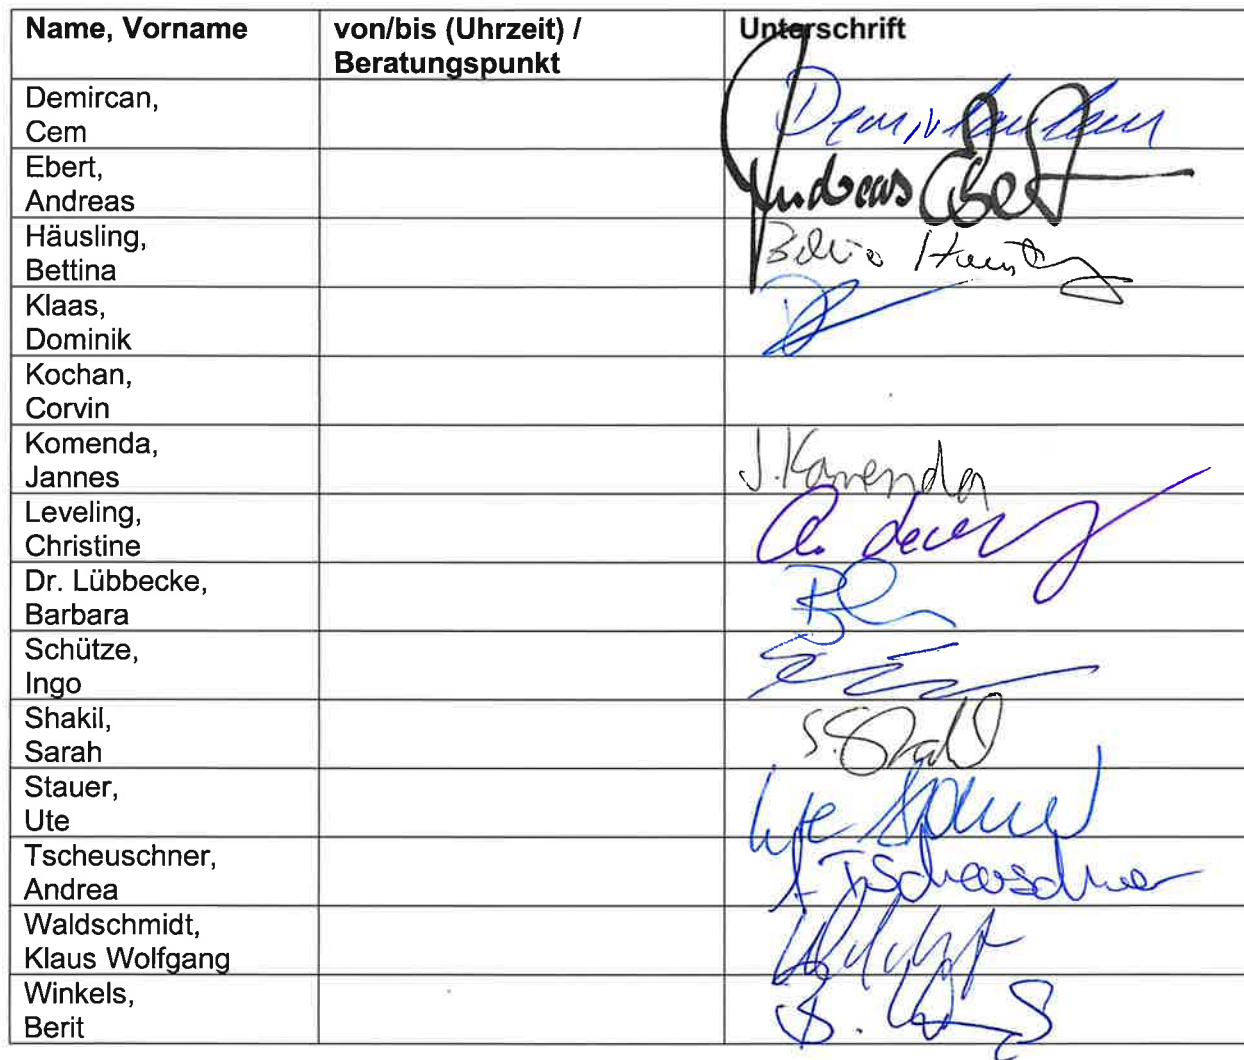 Name, Vorname von/bis (Uhrzeit) / Unterschrift
Beratungspunkt
Demircan,
Cem
Ebert,
Andreas Andreas Ebert
Häusling,
Bettina
Klaas,
Dominik
Kochan,
Corvin
Komenda,
Jannes J. Komenda
Leveling,
Christine
Dr. Lübbecke,
Barbara
Schütze,
Ingo
Shakil,
Sarah
Stauer,
Ute
Tscheuschner,
Andrea A Tscheuschner
Waldschmidt,
Klaus Wolfgang
Winkels,
Berit